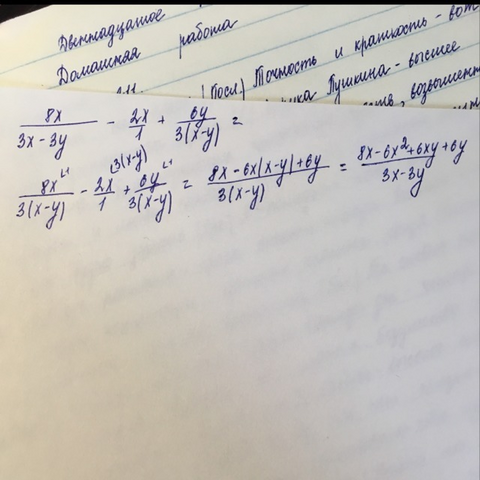 Двеннадцатое
Домашная работа
(Посл.) Точность и краткость - вот
Пушкина - высшее
8x/(3x - 3y) - 2x/1 + 6y/(3(x-y)) =
8x/(3(x-y)) - 2x/1 + 6y/(3(x-y)) = (8x - 6x(x-y) + 6y)/(3(x-y)) = (8x - 6x² + 6xy + 6y)/(3x - 3y)